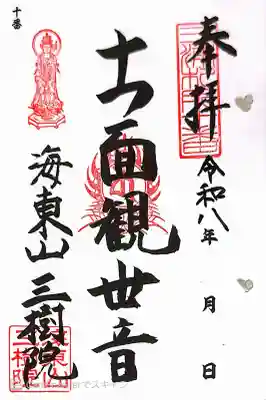 奉拝
令和八年 月 日
十一面観世音
海東山 三樹院
十番
でスキャン